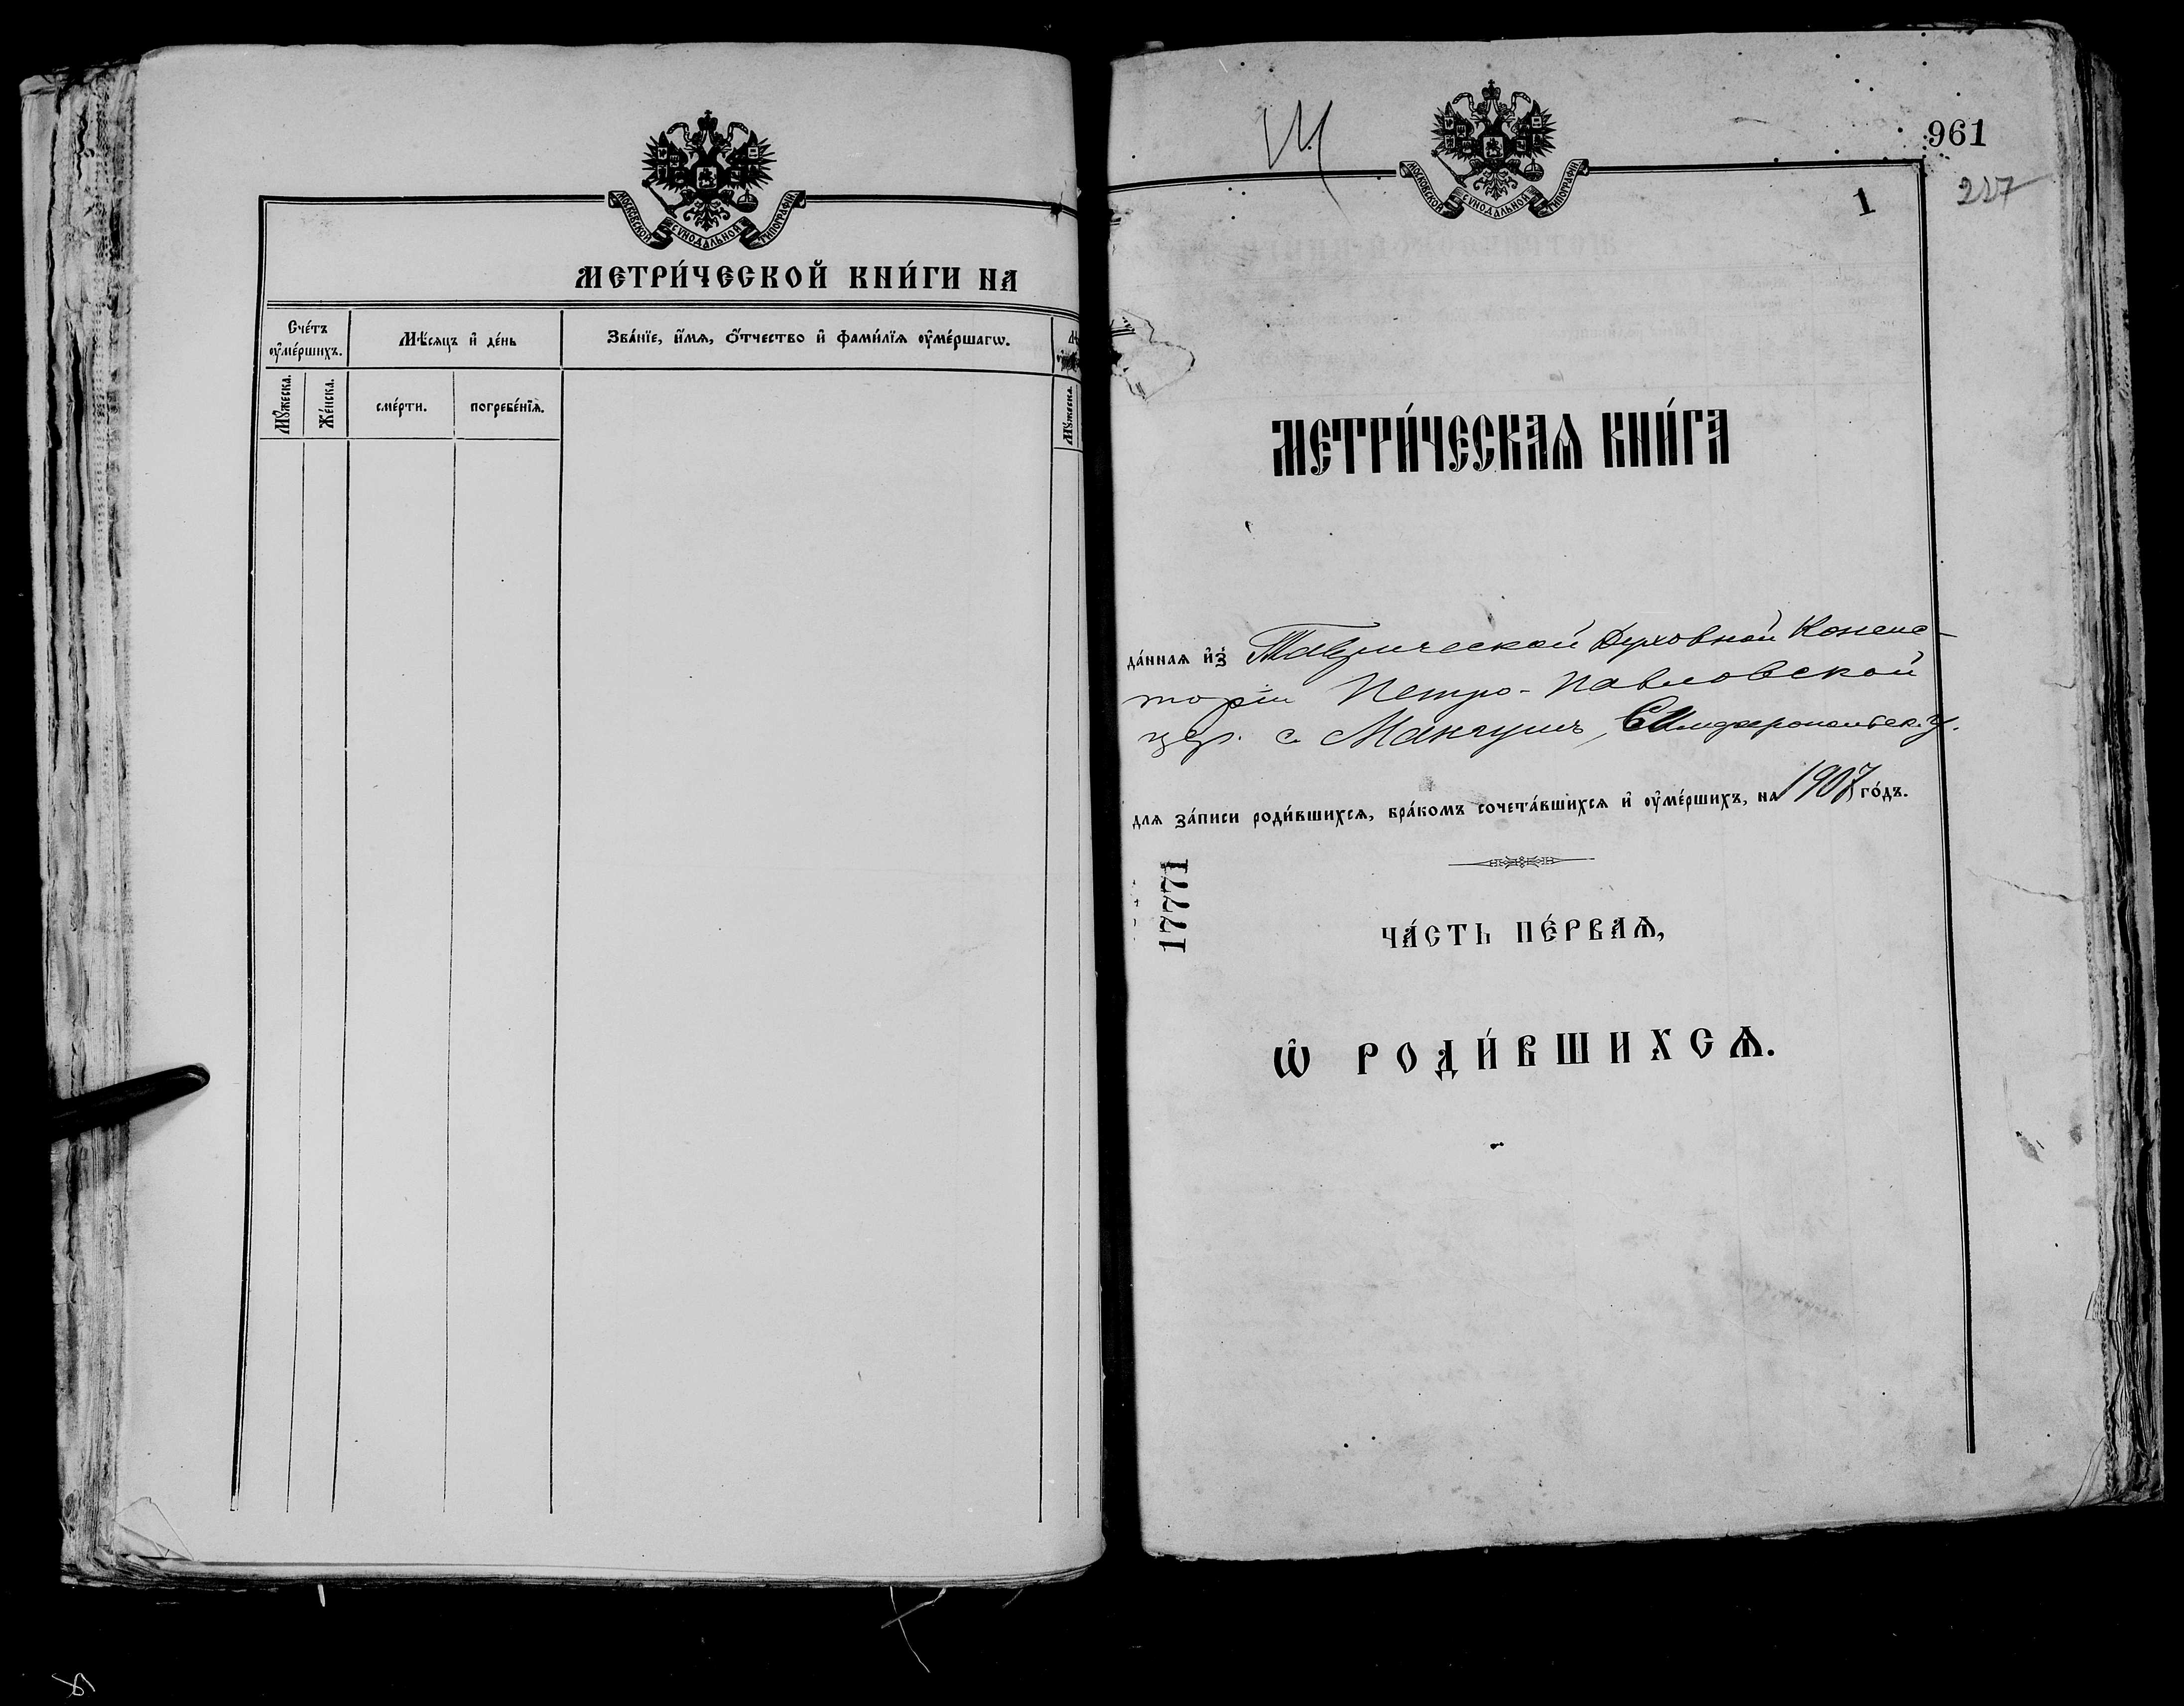 МОСКОВСКОЙ СУНОДАЛЬНОЙ ТИПОГРАФІИ
МЕТРИ́ЧЕСКОЙ КНИ́ГИ НА
Сче́тъ ᲂу҆ме́ршихъ.
Мѣ́сяцъ и҆ де́нь
Зва́нїе, и҆́мѧ, ѻ҆́тчество и҆ фами́лїѧ ᲂу҆ме́ршагѡ.
Мꙋ́жеска.
Же́нска.
сме́рти.
погребе́нїѧ.
Мꙋ́жеска.
МОСКОВСКОЙ СУНОДАЛЬНОЙ ТИПОГРАФІИ
961
1
217
МЕТРИ́ЧЕСКАѦ КНИ́ГА
да́ннаѧ и҆з̾ Таврической Духовной Консис-
торіи Петро-Павловской
цер. с. Мангушъ, Симферопольск. у.
длѧ за́писи роди́вшихсѧ, бра́комъ сочета́вшихсѧ и҆ ᲂу҆ме́ршихъ, на 1907 го́дъ.
17771
ЧА́СТЬ ПЕ́РВАѦ,
Ѡ҆ РОДИ́ВШИХСѦ.